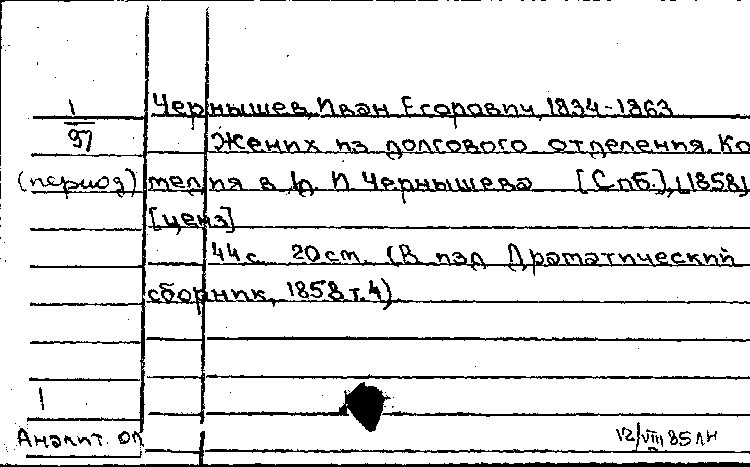 1/97
(период)
Чернышев, Иван Егорович, 1834-1863
Жених из долгового отделения. Ко
медия в 1д. И Чернышева [Спб.], [1858]
[ценз]
44с. 20см. (В изд Драматический
сборник, 1858, т.4)
1
Аналит. оп
12/VIII 85 ЛН